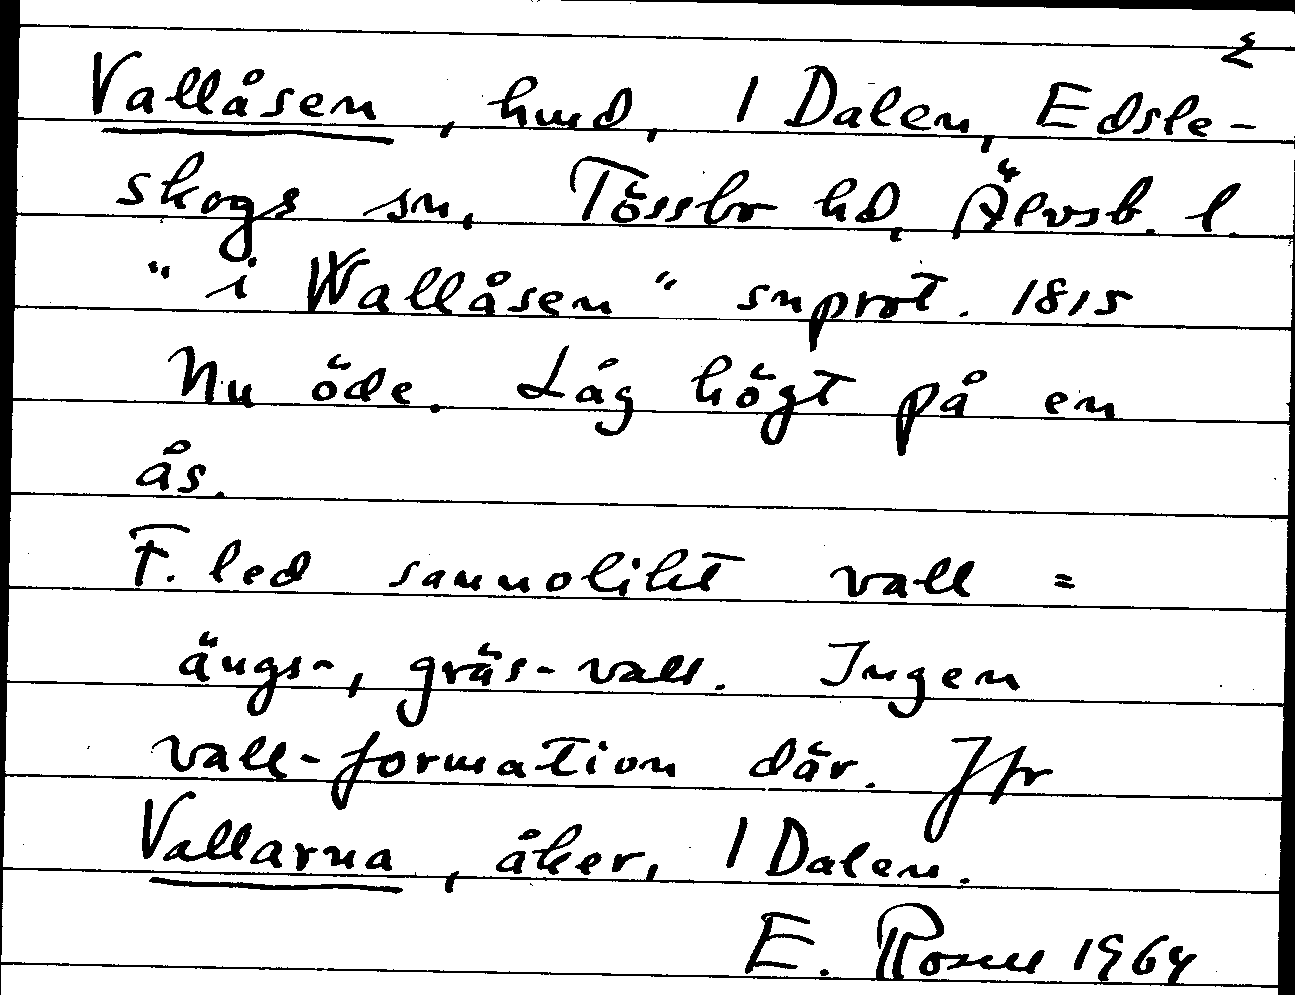 Vallåsen, hmd, 1 Dalen, Edsle-
skogs sn, Tössbo hd, Älvsb. l.
"i Wallåsen" snprot. 1815
Nu öde. Låg högt på en
ås.
F. led sannolikt vall =
ängs-, gräs-vall. Ingen
vall-formation där. Jfr
Vallarna, åker, 1 Dalen.
E. 1964